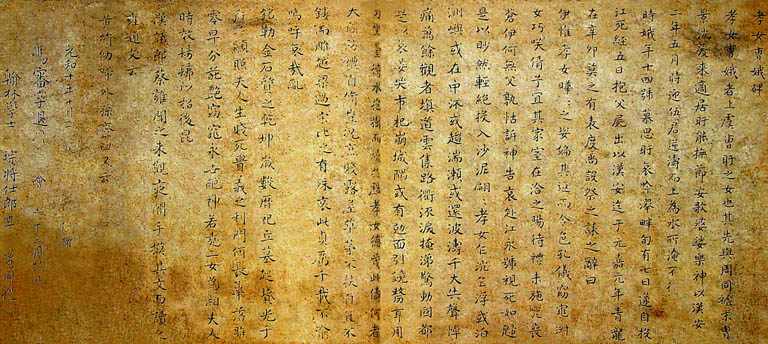 孝女曹娥碑
孝女曹娥者上虞曹盱之女也其先與周同祖末胄
景沉爰來適居盱能撫節安歌婆娑樂神以漢安
二年五月時迎伍君逆濤而上為水所淹不
時娥年十四號慕思盱哀吟澤畔旬有七日遂自投
江死經五日抱父屍出以漢安迄于元嘉元年青龍
在辛卯莫之有表度尚設祭之誄之辭曰
伊惟孝女曄〻之姿偏其返而令色孔儀窈窕淑
女巧笑倩兮宜其家室在洽之陽待禮未施嗟喪
蒼伊何無父孰怙訴神告哀赴江永號視死如歸
是以眇然輕絕投入沙泥翩〻孝女乍沉乍浮或泊
洲嶼或在中流或趨湍瀨或還波濤千夫失聲悼
痛萬餘觀者填道雲集路衢泣淚掩涕驚慟國都
是以哀姜哭市杞崩城隅或有剋面引鏡剺耳用
刀坐臺待水抱樹而燒於戲孝女德茂此儔何者
大國防禮自脩豈況庶賤露屋草茅不扶自直不
鏤而雕越梁過宋比之有殊哀此貞厲千載不渝
嗚呼哀哉亂
銘勒金石質之乾坤歲數歷祀立墓起墳光于
后土顯照夫人生賤死貴義之利門何悵華落雕
零早分葩豔窈窕永世配神若堯二女為湘夫人
時效髣髴以招後昆
漢議郎蔡雍聞之來觀夜闇手摸其文而讀之
雍題文云
黃絹幼婦外孫虀臼又云
元和十年十月
馮審
翰林學士 將仕郎